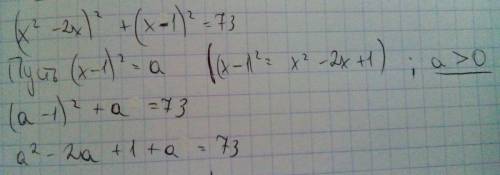 (x² - 2x)² + (x-1)² = 73
Пусть (x-1)² = a ((x-1)² = x² - 2x + 1) ; a > 0
(a-1)² + a = 73
a² - 2a + 1 + a = 73